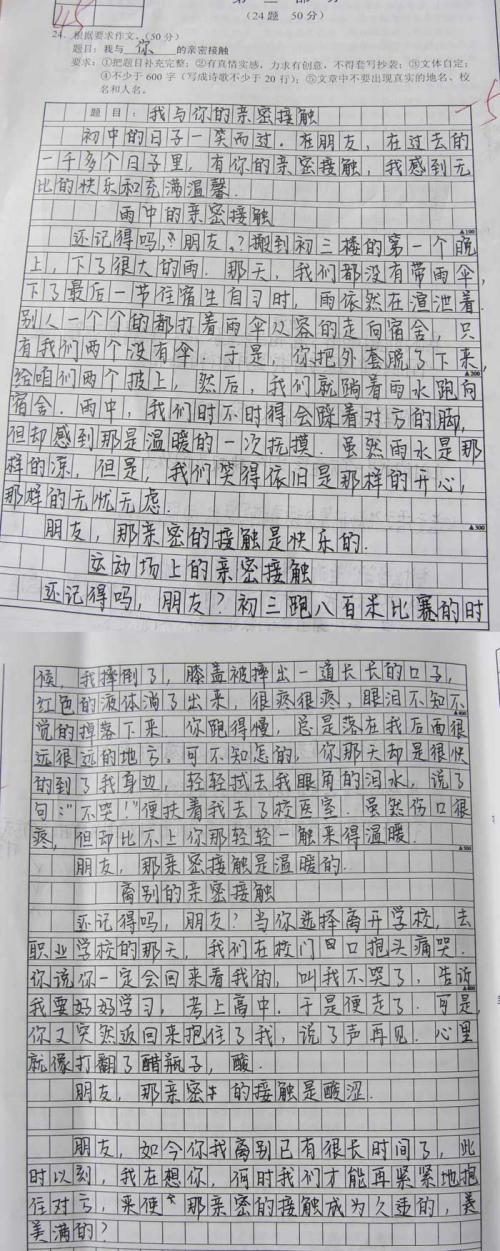 45
第二部分
(24题 50分)
24. 根据要求作文。(50分)
题目:我与 你 的亲密接触
要求:①把题目补充完整;②有真情实感,力求有创意,不得套写抄袭;③文体自定;
④不少于 600 字(写成诗歌不少于 20 行);⑤文章中不要出现真实的地名、校
名和人名。
-5
题目:我与你的亲密接触
初中的日子一笑而过.在朋友,在过去的
一千多个日子里,有你的亲密接触,我感到无
比的快乐和充满温馨.
▲100
雨中的亲密接触
还记得吗,朋友?搬到初三楼的第一个晚
上,下了很大的雨.那天,我们都没有带雨伞,
下了最后一节住宿生自习时,雨依然在渲泄着.
别人一个个的都打着雨伞从容的走向宿舍,只
有我们两个没有伞.于是,你把外套脱了下来,
▲200
给咱们两个披上,然后,我们就踏着雨水跑向
宿舍.雨中,我们时不时得会踩着对方的脚,
但却感到那是温暖的一次抚摸.虽然雨水是那
样的凉,但是,我们笑得依旧是那样的开心,
那样的无忧无虑.
▲300
朋友,那亲密的接触是快乐的.
运动场上的亲密接触
还记得吗,朋友?初三跑八百米比赛的时
候,我摔倒了,膝盖被摔出一道长长的口子,
红色的液体淌了出来,很疼很疼,眼泪不知不
▲400
觉的掉落下来.你跑得慢,总是落在我后面很
远很远的地方.可不知怎的,你那天却是很快
的到了我身边,轻轻拭去我眼角的泪水,说了
句:"不哭!"便扶着我去了校医室.虽然伤口很
疼,但却比不上你那轻轻一触来得温暖.
▲500
朋友,那亲密接触是温暖的.
离别的亲密接触
还记得吗,朋友?当你选择离开学校,去
职业学校的那天,我们在校门口抱头痛哭.
你说你一定会回来看我的,叫我不哭了,告诉
▲600
我要好好学习,考上高中.于是便走了.可是,
你又突然返回来抱住了我,说了声再见.心里
就像打翻了醋瓶子,酸.
朋友,那亲密的接触是酸涩.
朋友,如今你我离别已有很长时间了,此
时以刻,我在想你,何时我们才能再紧紧地抱
住对方,来使那亲密的接触成为久违的,美
美满的?